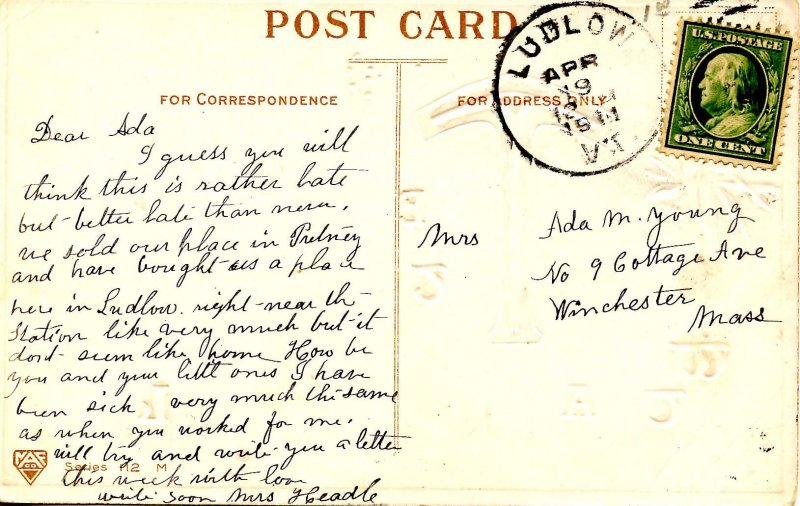 POST CARD
LUDLOW
APR
19
1911
VT.
U.S. POSTAGE
ONE CENT
FOR CORRESPONDENCE
FOR ADDRESS ONLY
Dear Ada
I guess you will
think this is rather late
but better late than never.
we sold our place in Putney
and have bought us a place
here in Ludlow right near the
Station like very much but it
dont seem like home How be
you and your little ones I have
been sick very much the same
as when you worked for me.
will try and write you a letter
this week with love
write soon Mrs Headle
Mrs Ada M. Young
No 9 Cottage Ave
Winchester
Mass
Series 112 M